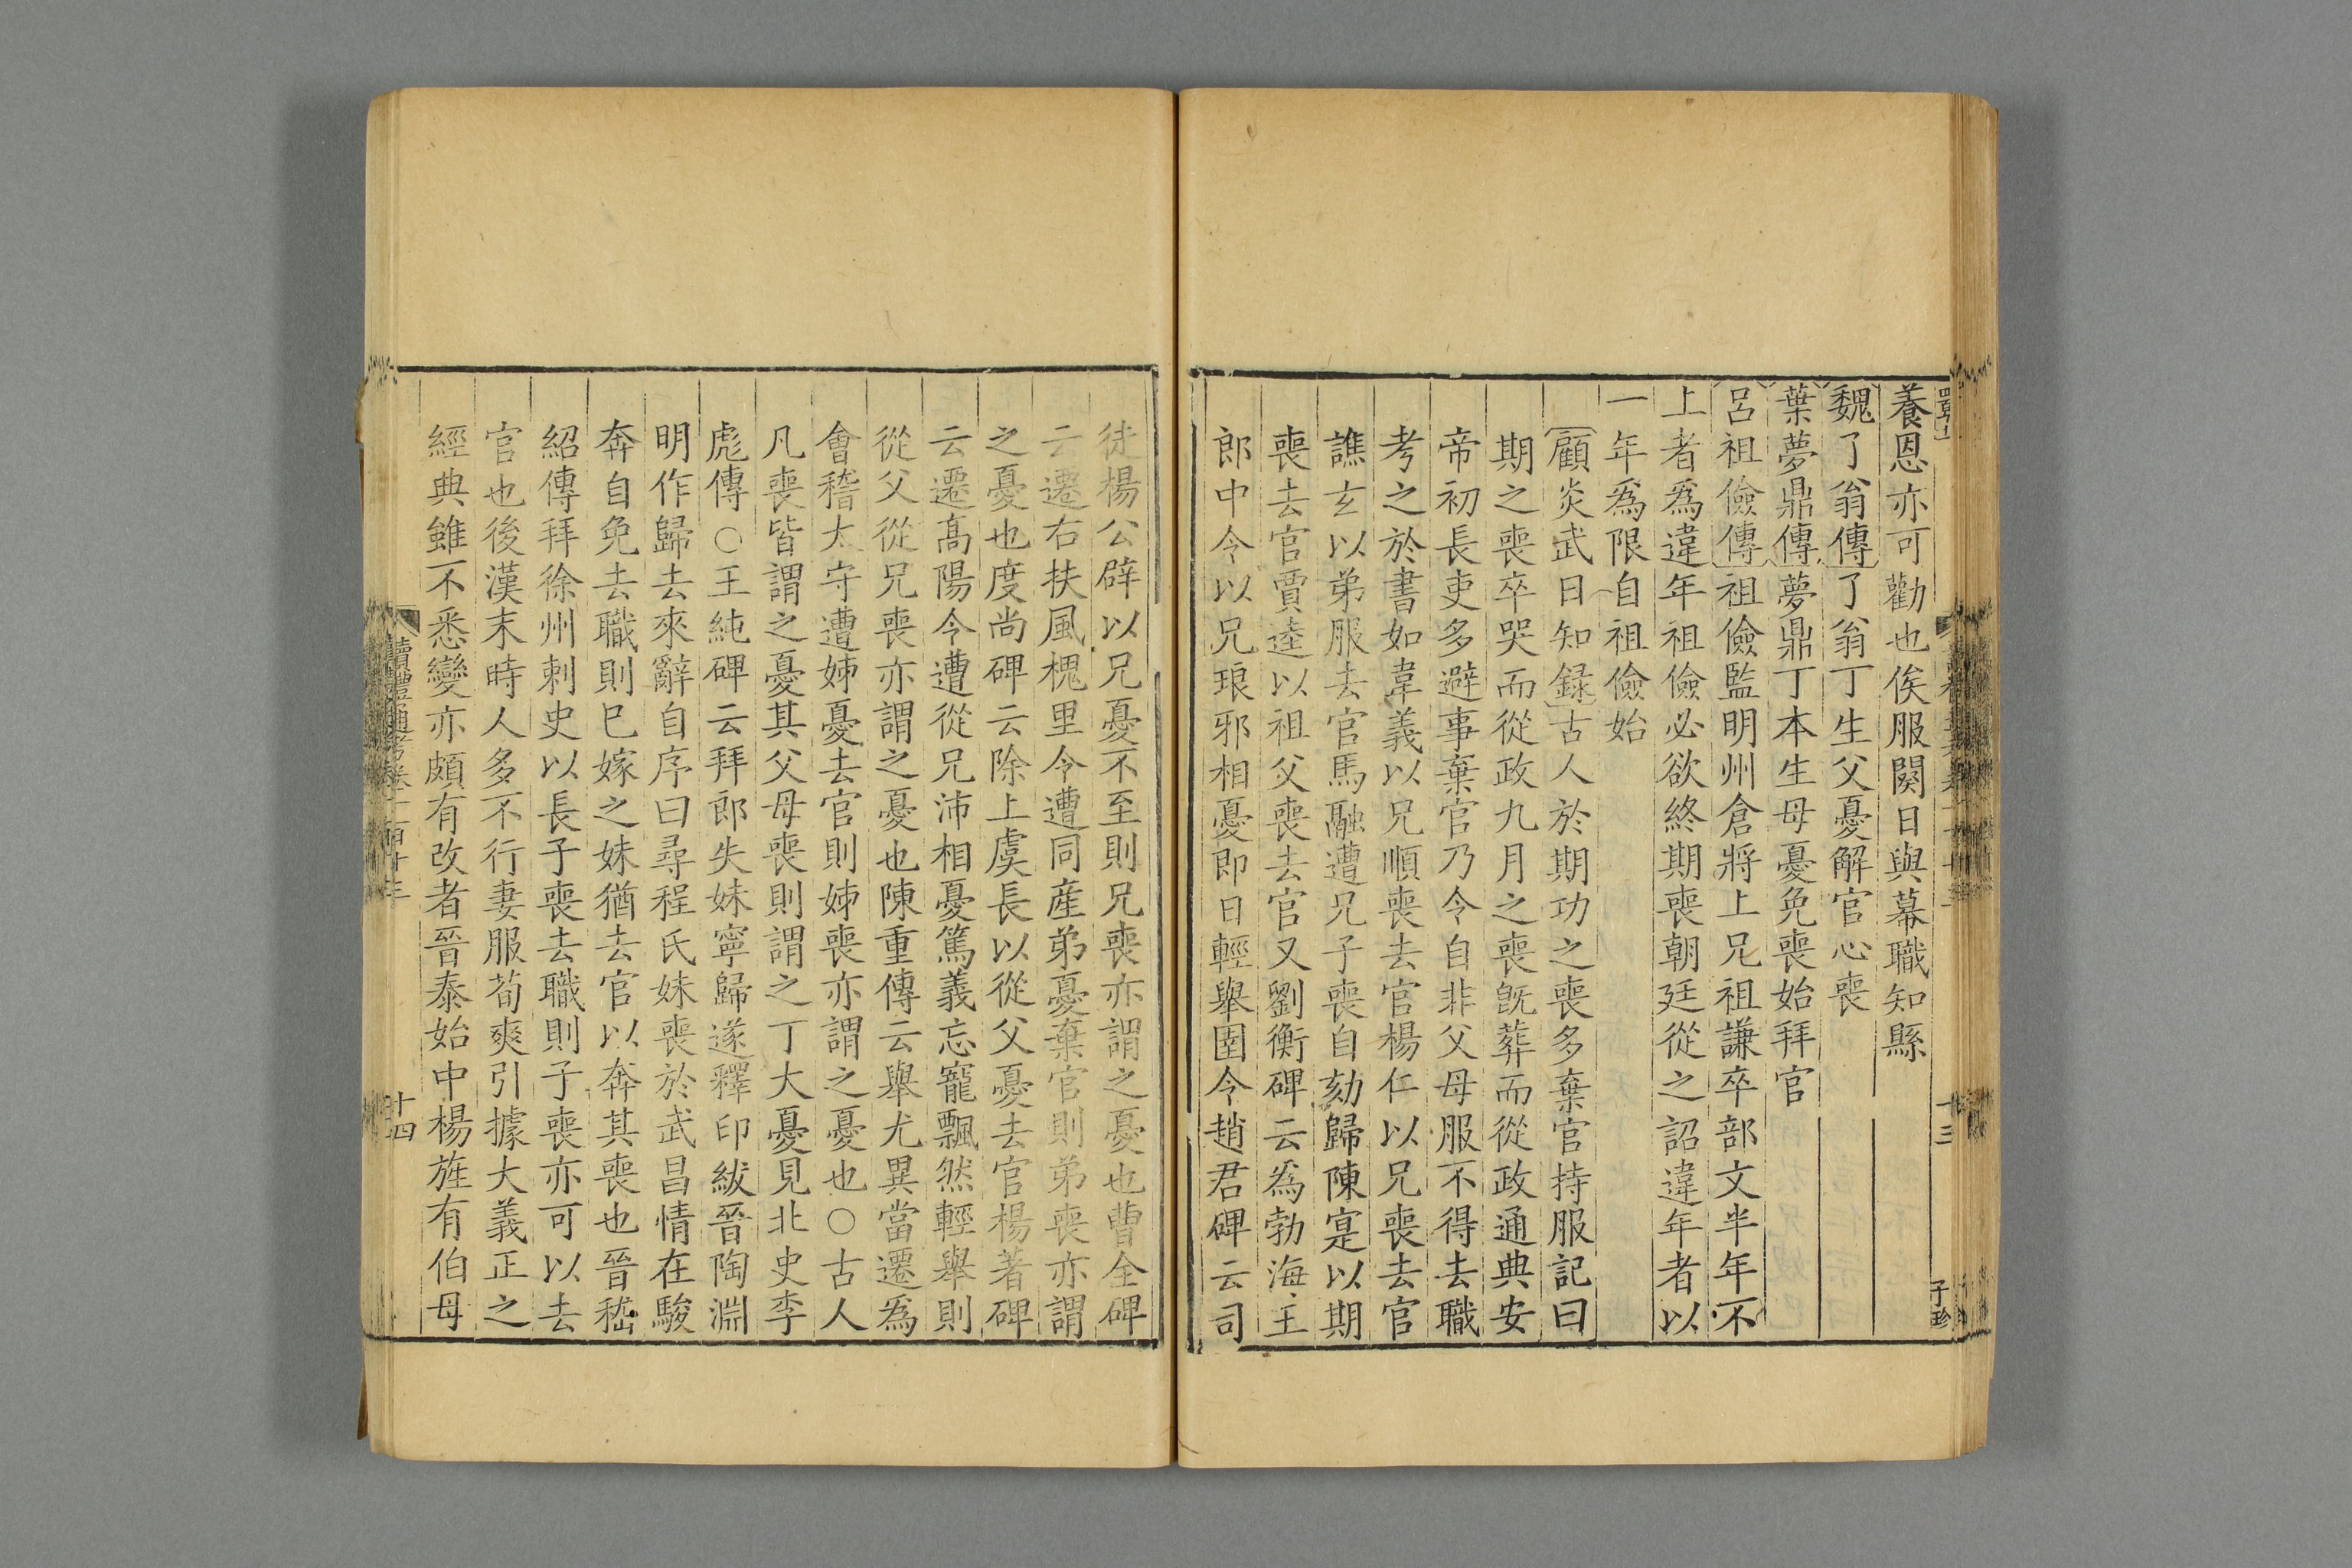 養恩亦可勸也俟服闋日與幕職知縣
魏了翁傳了翁丁生父憂解官心喪
葉夢鼎傳夢鼎丁本生母憂免喪始拜官
呂祖儉傳祖儉監明州倉將上兄祖謙卒部文半年不
上者爲違年祖儉必欲終期喪朝廷從之詔違年者以
一年爲限自祖儉始
顧炎武日知録古人於期功之喪多棄官持服記曰
期之喪卒哭而從政九月之喪旣葬而從政通典安
帝初長吏多避事棄官乃令自非父母服不得去職
考之於書如韋義以兄順喪去官楊仁以兄喪去官
譙玄以弟服去官馬融遭兄子喪自劾歸陳寔以期
喪去官賈逵以祖父喪去官又劉衡碑云爲勃海王
郎中令以兄琅邪相憂即日輕舉圉令趙君碑云司
十三
子珍
徒楊公辟以兄憂不至則兄喪亦謂之憂也曹全碑
云遷右扶風槐里令遭同産弟憂棄官則弟喪亦謂
之憂也度尚碑云除上虞長以從父憂去官楊著碑
云遷高陽令遭從兄沛相憂篤義忘寵飄然輕舉則
從父從兄喪亦謂之憂也陳重傳云舉尤異當遷爲
會稽太守遭姊憂去官則姊喪亦謂之憂也○古人
凡喪皆謂之憂其父母喪則謂之丁大憂見北史李
彪傳○王純碑云拜郎失妹寧歸遂釋印紱晉陶淵
明作歸去來辭自序曰尋程氏妹喪於武昌情在駿
奔自免去職則已嫁之妹猶去官以奔其喪也晉嵇
紹傳拜徐州刺史以長子喪去職則子喪亦可以去
官也後漢末時人多不行妻服荀爽引據大義正之
經典雖不悉變亦頗有改者晉泰始中楊旌有伯母
讀禮通考卷一百十三
十四